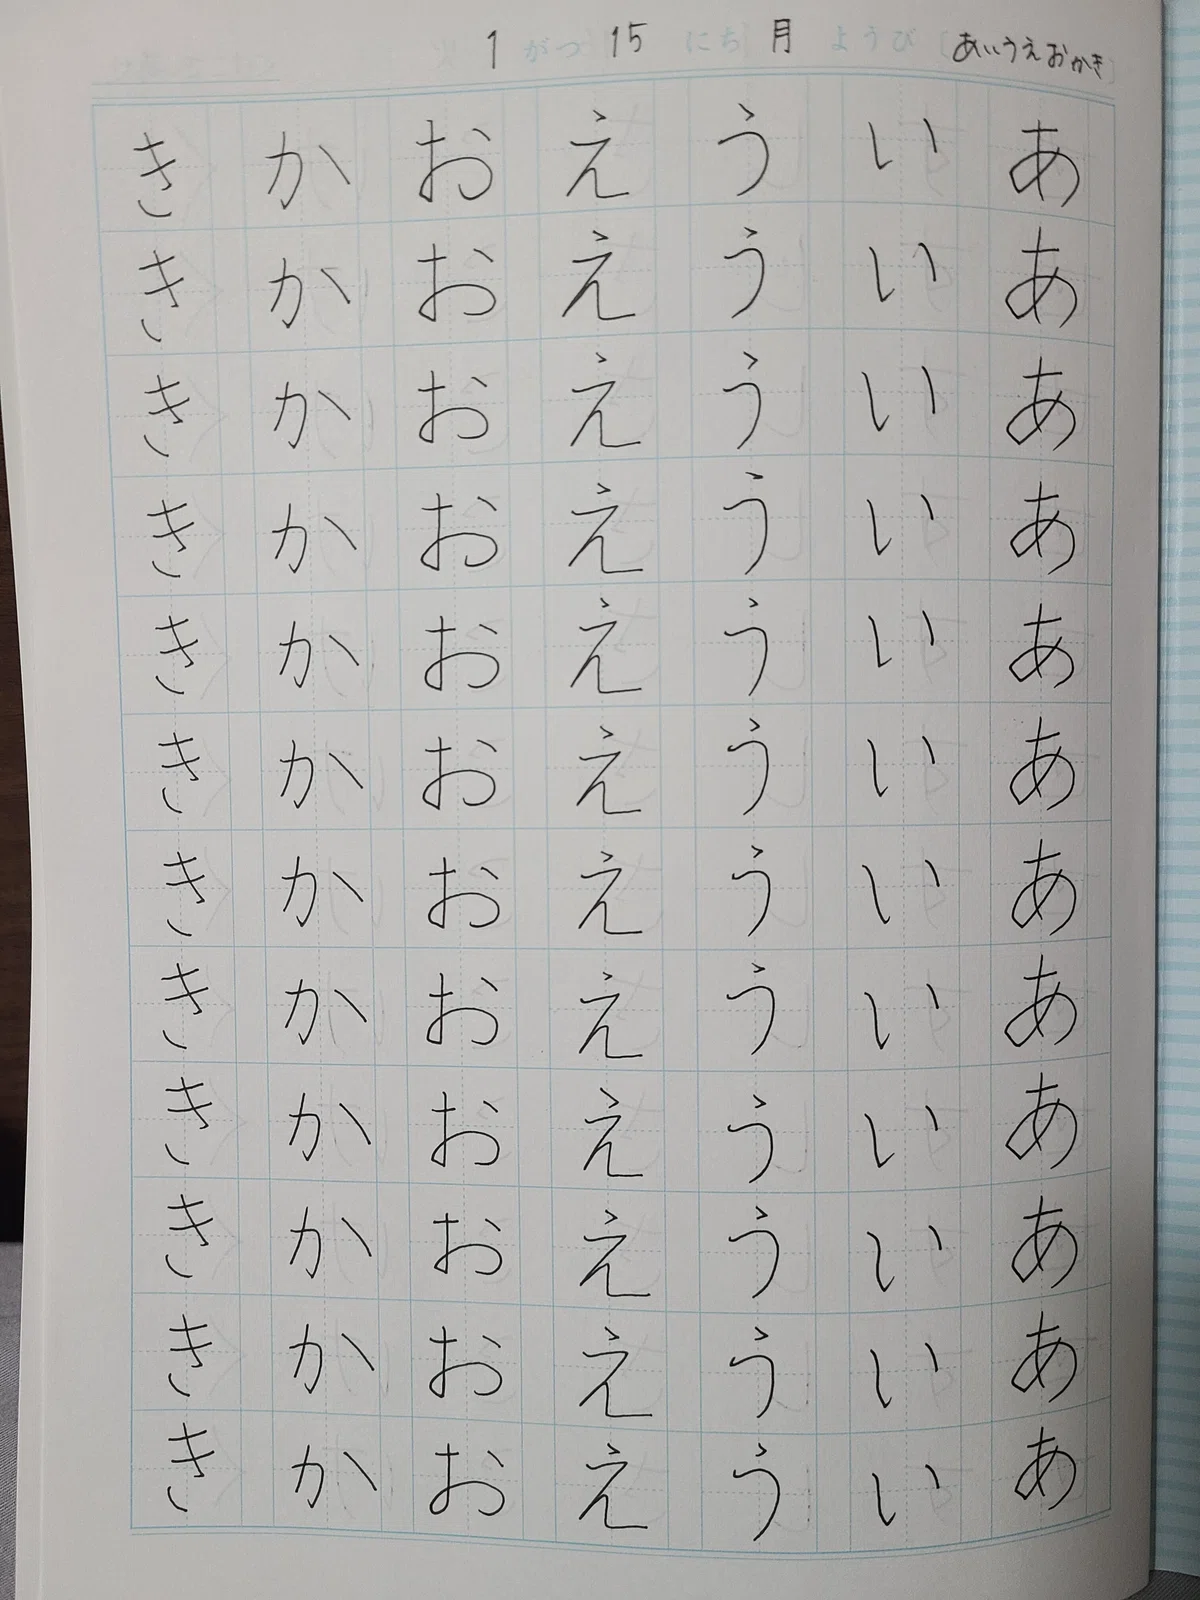 1 がつ 15 にち 月 ようび [あいうえおかき]
ああああああああああああ
いいいいいいいいいいいい
うううううううううううう
ええええええええええええ
おおおおおおおおおおおお
かかかかかかかかかかかか
きききききききききききき